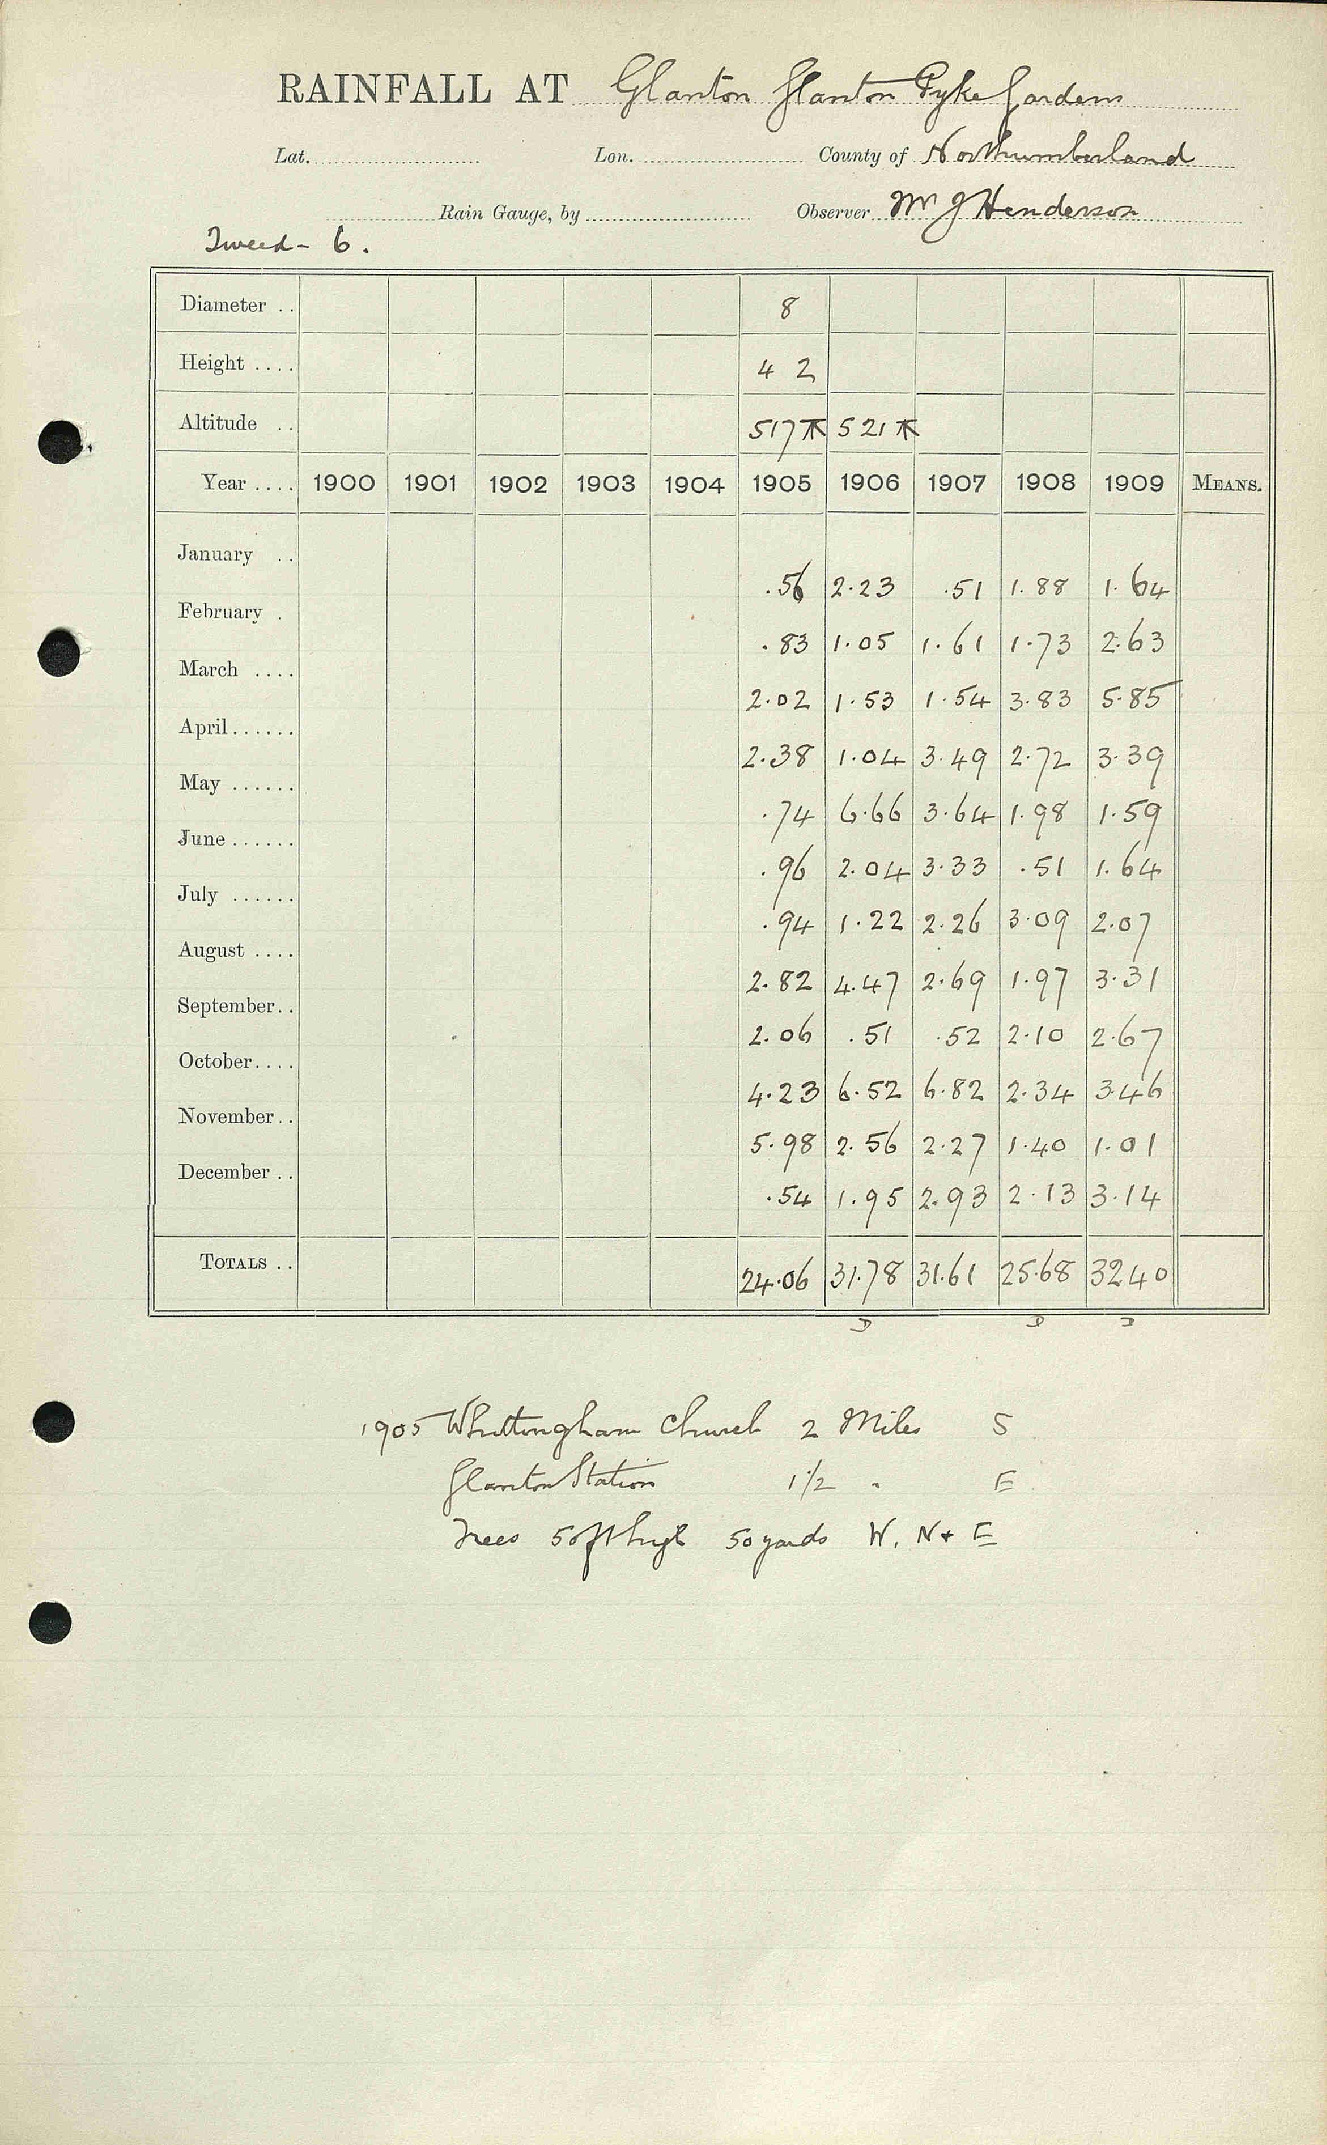 RAINFALL AT Glanton Glanton Pyke Gardens
Lat. Lon. County of Northumberland
Rain Gauge, by Observer Mr J Henderson
Tweed - 6.
Diameter .. 8
Height .... 4 2
Altitude .. 517 521
Year .... 1900 1901 1902 1903 1904 1905 1906 1907 1908 1909 MEANS.
January .. .56 2.23 .51 1.88 1.64
February . .83 1.05 1.61 1.73 2.63
March .... 2.02 1.53 1.54 3.83 5.85
April...... 2.38 1.04 3.49 2.72 3.39
May ...... .74 6.66 3.64 1.98 1.59
June...... .96 2.04 3.33 .51 1.64
July ...... .94 1.22 2.26 3.09 2.07
August .... 2.82 4.47 2.69 1.97 3.31
September.. 2.06 .51 .52 2.10 2.67
October.... 4.23 6.52 6.82 2.34 3.46
November.. 5.98 2.56 2.27 1.40 1.01
December .. .54 1.95 2.93 2.13 3.14
TOTALS .. 24.06 31.78 31.61 25.68 3240
1905 Whittingham Church 2 Miles S
Glanton Station 1 1/2 " E
Trees 50ft high 50 yards W. N + E